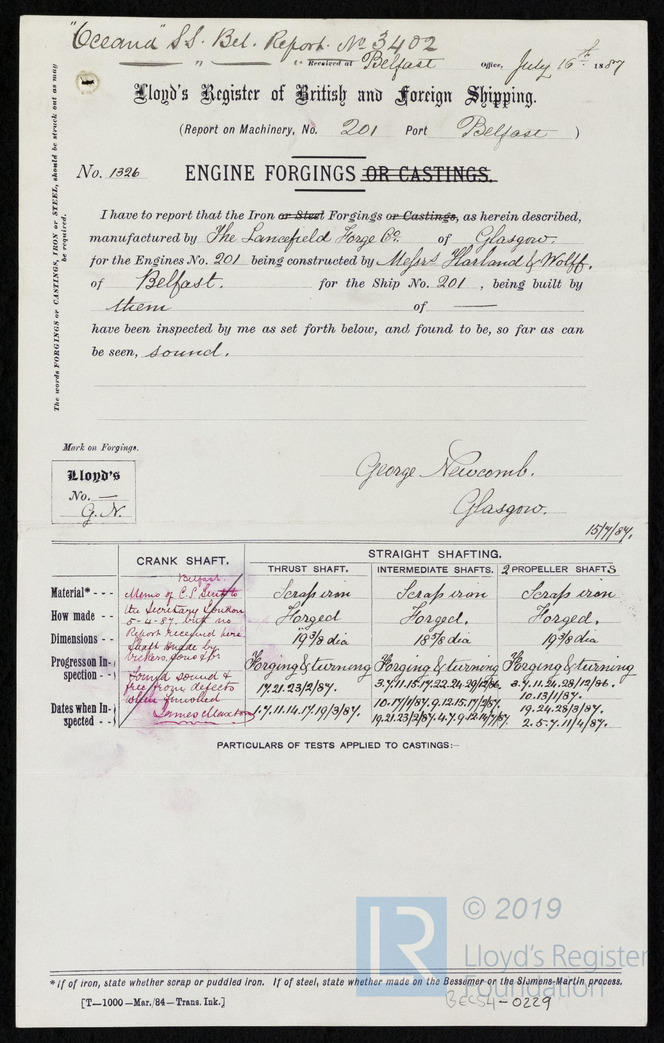 "Oceana" S.S. Bel. Report. No 3402
" Received at Belfast Office, July 16th 1887
Lloyd's Register of British and Foreign Shipping.
(Report on Machinery, No. 201 Port Belfast )
No. 1326 ENGINE FORGINGS OR CASTINGS.
The words FORGINGS or CASTINGS, IRON or STEEL, should be struck out as may
be required.
I have to report that the Iron or Steel Forgings or Castings, as herein described,
manufactured by The Lancefield Forge Co. of Glasgow.
for the Engines No. 201 being constructed by Messrs Harland & Wolff.
of Belfast. for the Ship No. 201 , being built by
them of —
have been inspected by me as set forth below, and found to be, so far as can
be seen, sound.
Mark on Forgings.
Lloyd's
No. —
G.N.
George Newcomb.
Glasgow.
15/7/87.
CRANK SHAFT. STRAIGHT SHAFTING.
THRUST SHAFT. INTERMEDIATE SHAFTS. 2 PROPELLER SHAFTS
Belfast.
Material* - - - Memo of C.S. Sent to Scrap iron Scrap iron Scrap iron
the Secretary London
How made - - 5-4-87. but no Forged Forged. Forged.
Report received here
Dimensions - - Shaft made by 19 3/8 dia 18 5/8 dia 19 3/8 dia
Vickers, Sons & Co
Progress on In-
spection - - Found sound & Forging & turning Forging & turning Forging & turning
free from defects 17.21.23/2/87. 3.7.11.15.17.22.24.29/12/86. 3.7.11.24.28/12/86.
when 10.13/1/87.
Dates when In-
spected - - James Maxton 1.7.11.14.17.19/3/87. 10.17/1/87.9.12.15.17/2/87. 19.24.28/3/87.
19.21.23/2/87.4.7.9.12.14/7/87 2.5.7.11/4/87.
PARTICULARS OF TESTS APPLIED TO CASTINGS:—
© 2019
LR
Lloyd's Register
Foundation
*If of iron, state whether scrap or puddled iron. If of steel, state whether made on the Bessemer or the Siemens-Martin process.
[T—1000—Mar./84—Trans. Ink.]
BEC54-0229